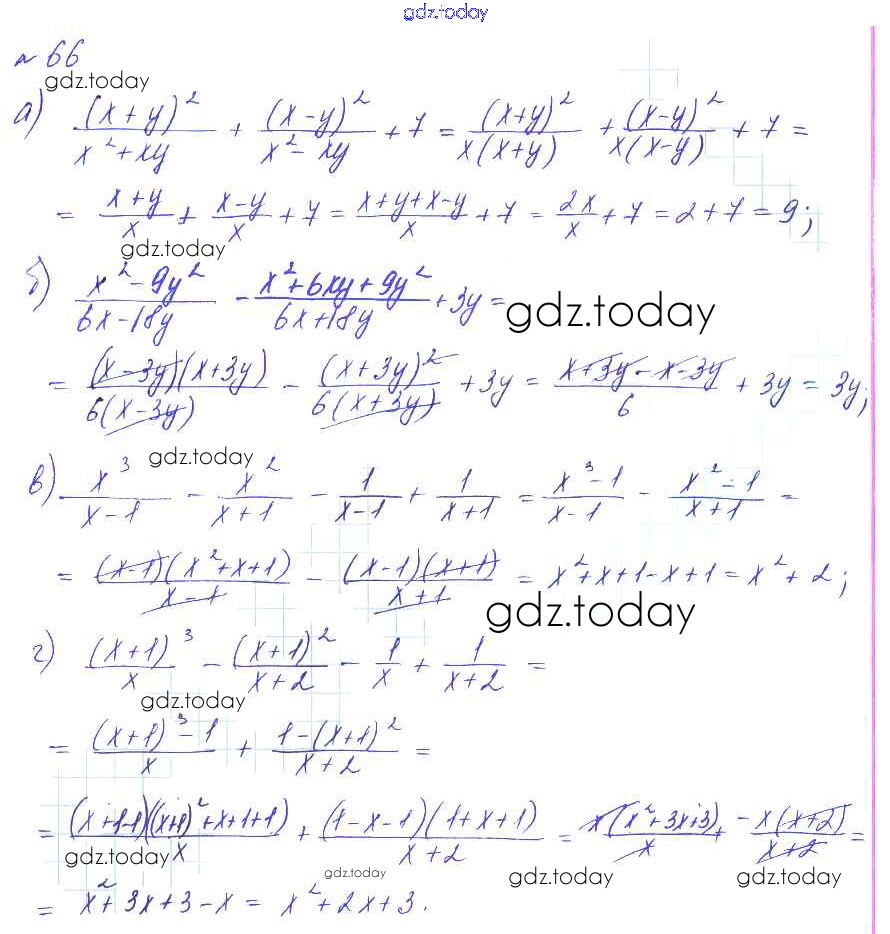 gdz.today
№66
gdz.today
а) (x+y)²/(x²+xy) + (x-y)²/(x²-xy) + 7 = (x+y)²/(x(x+y)) + (x-y)²/(x(x-y)) + 7 =
= (x+y)/x + (x-y)/x + 7 = (x+y+x-y)/x + 7 = 2x/x + 7 = 2+7 = 9;
gdz.today
б) (x²-9y²)/(6x-18y) - (x²+6xy+9y²)/(6x+18y) + 3y =
gdz.today
= (x-3y)(x+3y)/(6(x-3y)) - (x+3y)²/(6(x+3y)) + 3y = (x+3y-x-3y)/6 + 3y = 3y;
gdz.today
в) x³/(x-1) - x²/(x+1) - 1/(x-1) + 1/(x+1) = (x³-1)/(x-1) - (x²-1)/(x+1) =
= (x-1)(x²+x+1)/(x-1) - (x-1)(x+1)/(x+1) = x²+x+1-x+1 = x²+2;
gdz.today
г) (x+1)³/x - (x+1)²/(x+2) - 1/x + 1/(x+2) =
gdz.today
= ((x+1)³-1)/x + (1-(x+1)²)/(x+2) =
= (x+1-1)((x+1)²+x+1+1)/x + (1-x-1)(1+x+1)/(x+2) = x(x²+3x+3)/x + -x(x+2)/(x+2) =
gdz.today
gdz.today
gdz.today
gdz.today
= x²+3x+3-x = x²+2x+3.